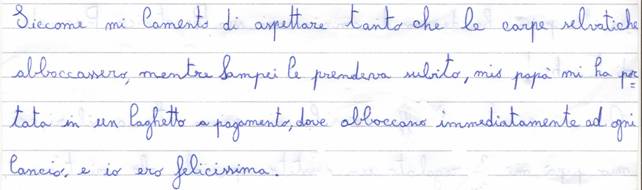 Siccome mi lamento di aspettare tanto che le carpe selvatiche
abboccassero, mentre Sampei le prendeva subito, mio papà mi ha por=
tata in un laghetto a pagamento, dove abboccano immediatamente ad ogni
lancio, e io ero felicissima.